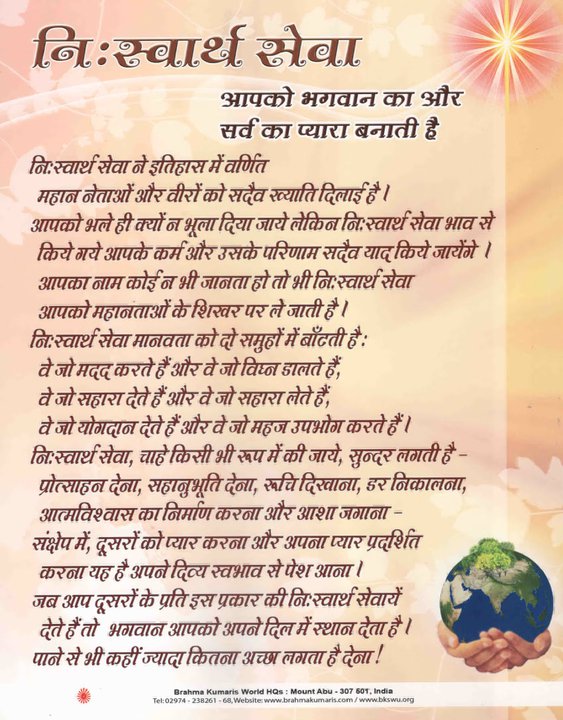 नि:स्वार्थ सेवा
आपको भगवान का और
सर्व का प्यारा बनाती है
नि:स्वार्थ सेवा ने इतिहास में वर्णित
महान नेताओं और वीरों को सदैव ख्याति दिलाई है।
आपको भले ही क्यों न भूला दिया जाये लेकिन नि:स्वार्थ सेवा भाव से
किये गये आपके कर्म और उसके परिणाम सदैव याद किये जायेंगे ।
आपका नाम कोई न भी जानता हो तो भी नि:स्वार्थ सेवा
आपको महानताओं के शिखर पर ले जाती है।
नि:स्वार्थ सेवा मानवता को दो समुहों में बाँटती है:
वे जो मदद करते हैं और वे जो विघ्न डालते हैं,
वे जो सहारा देते हैं और वे जो सहारा लेते हैं,
वे जो योगदान देते हैं और वे जो महज उपभोग करते हैं।
नि:स्वार्थ सेवा, चाहे किसी भी रूप में की जाये, सुन्दर लगती है –
प्रोत्साहन देना, सहानुभूति देना, रूचि दिखाना, डर निकालना,
आत्मविश्वास का निर्माण करना और आशा जगाना –
संक्षेप में, दूसरों को प्यार करना और अपना प्यार प्रदर्शित
करना यह है अपने दिव्य स्वभाव से पेश आना।
जब आप दूसरों के प्रति इस प्रकार की नि:स्वार्थ सेवायें
देते हैं तो भगवान आपको अपने दिल में स्थान देता है।
पाने से भी कहीं ज्यादा कितना अच्छा लगता है देना!
Brahma Kumaris World HQs : Mount Abu - 307 501, India
Tel:02974 - 238261 - 68, Website: www.brahmakumaris.com / www.bkswu.org